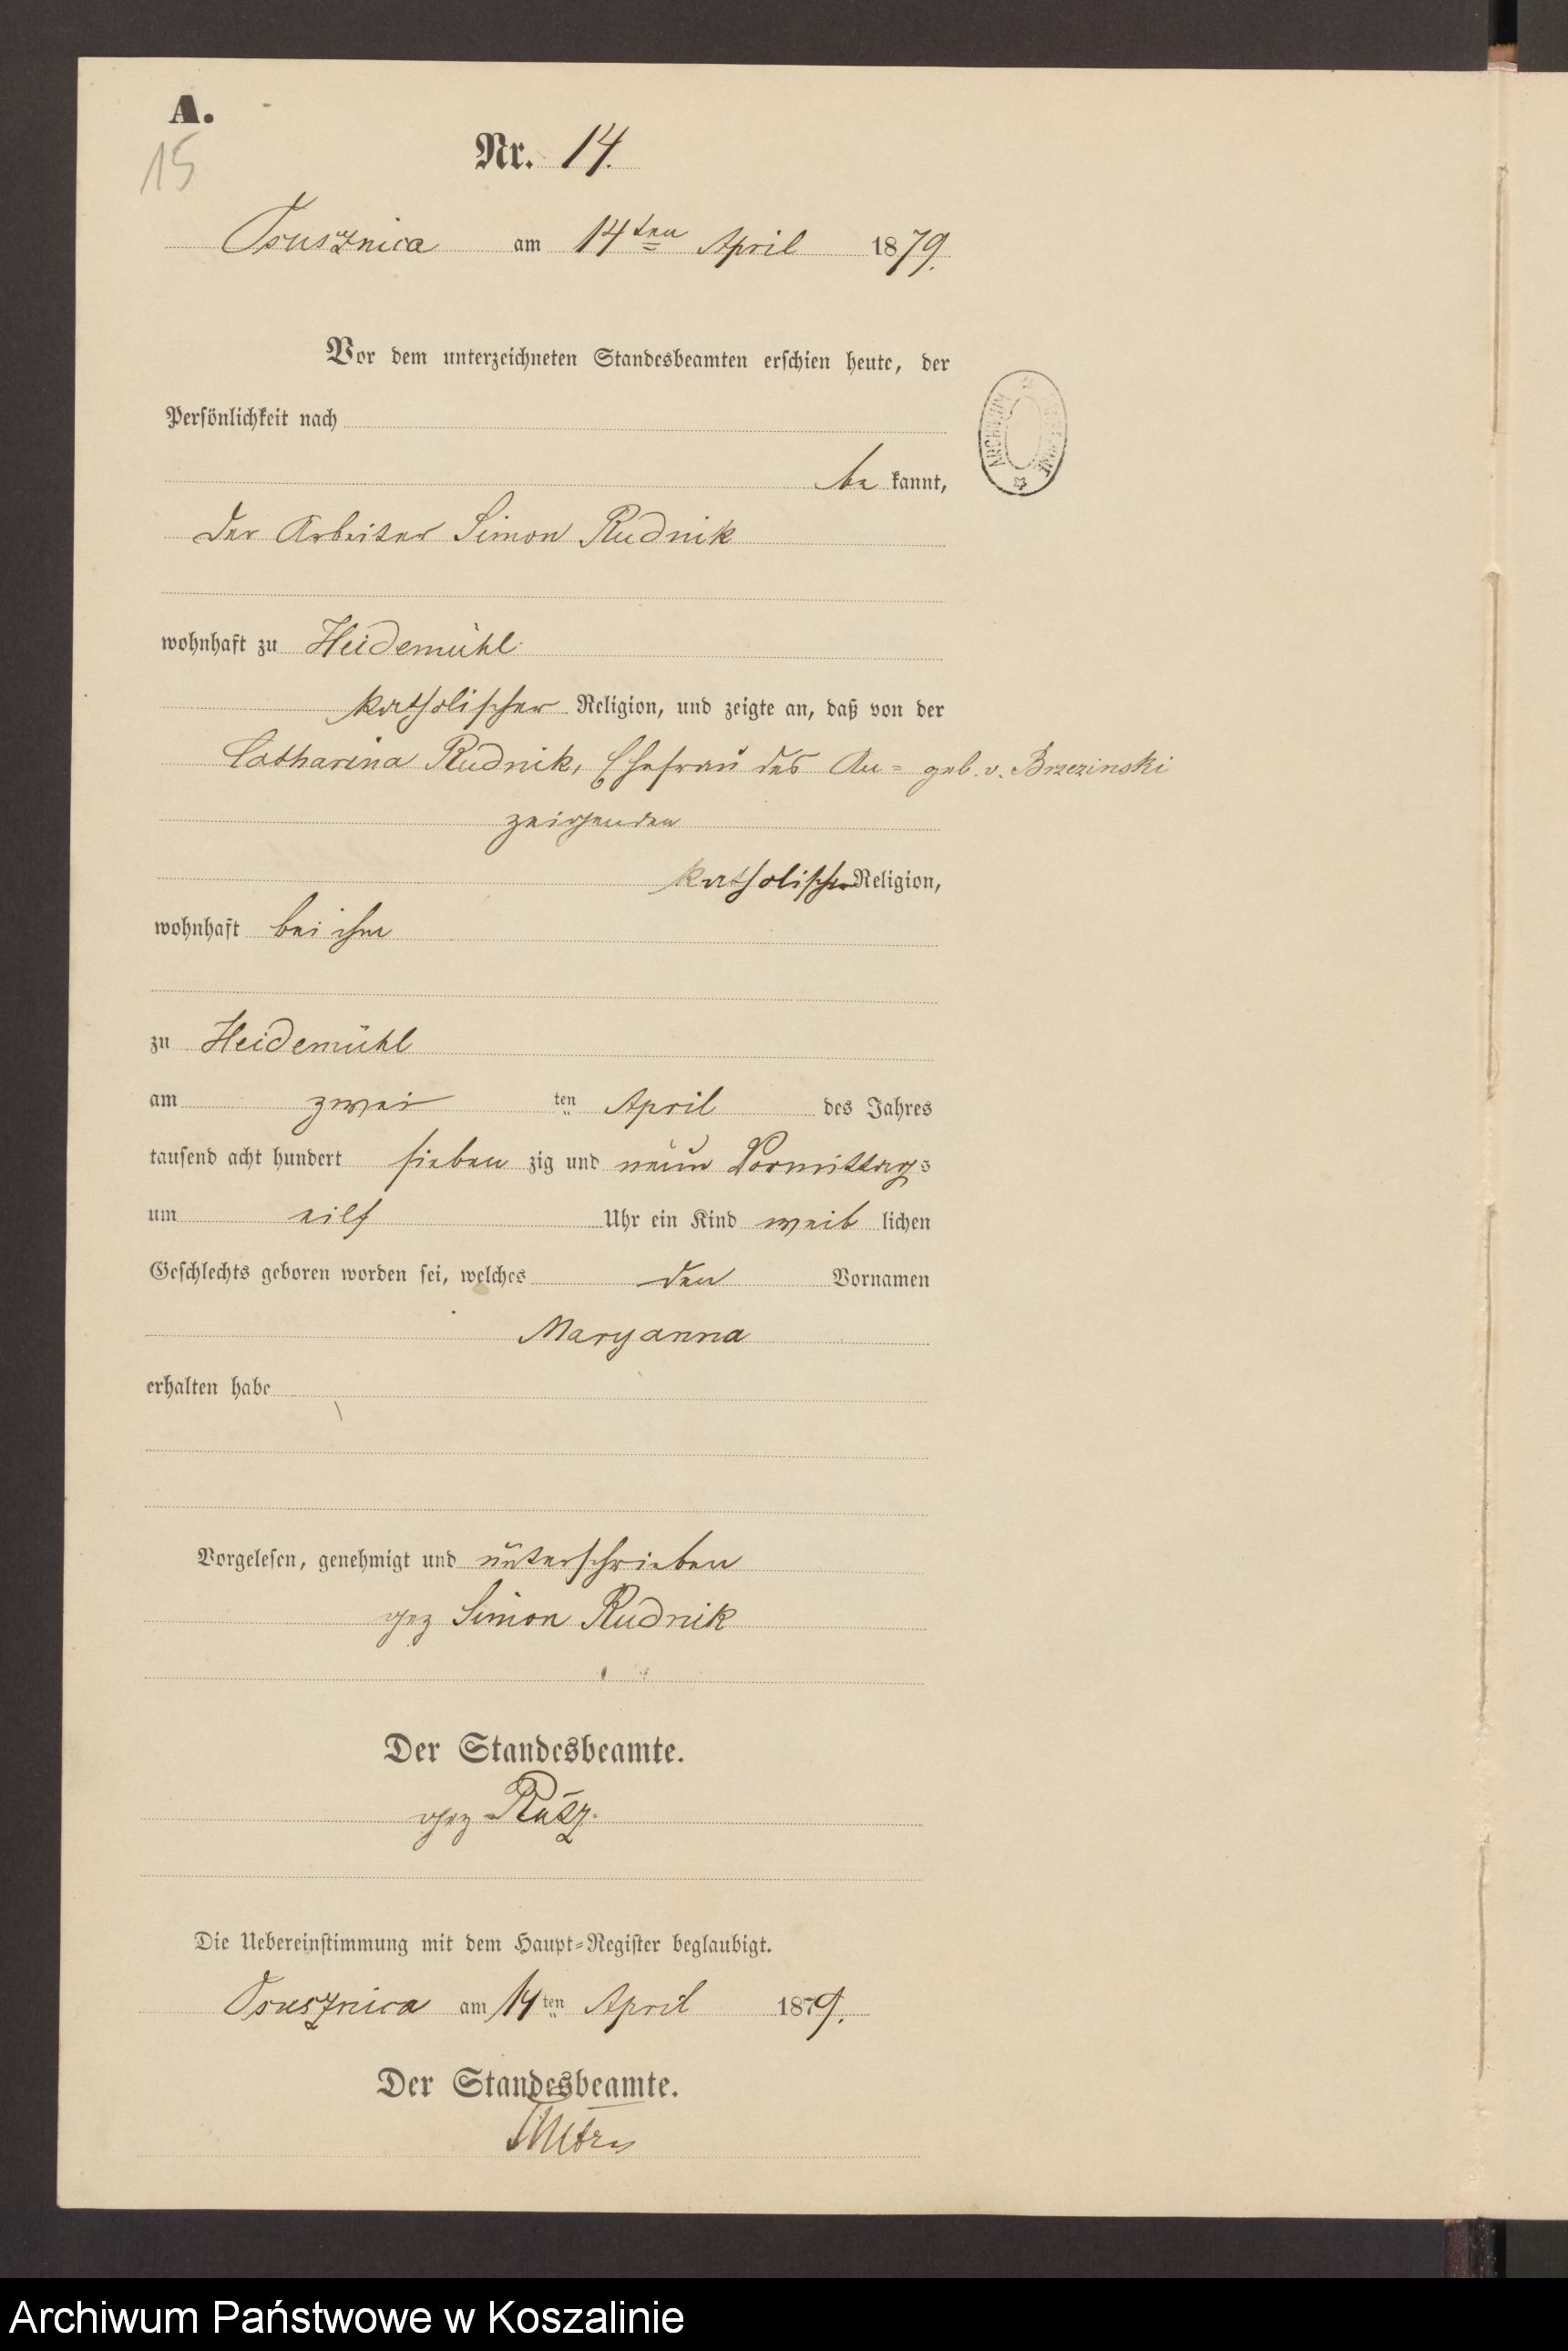 A.
15
Nr. 14.
Osusznica am 14ten April 1879.
Vor dem unterzeichneten Standesbeamten erschien heute, der
Persönlichkeit nach
be kannt,
der Arbeiter Simon Rudnik
wohnhaft zu Heidemühl
katholischer Religion, und zeigte an, daß von der
Catharina Rudnik, Ehefrau des An= geb. v. Brzezinski
zeigenden
katholischer Religion,
wohnhaft bei ihm
zu Heidemühl
am zwei ten April des Jahres
tausend acht hundert sieben zig und neun Vormittags
um eilf Uhr ein Kind weib lichen
Geschlechts geboren worden sei, welches den Vornamen
Maryanna
erhalten habe
Vorgelesen, genehmigt und unterschrieben
gez Simon Rudnik
Der Standesbeamte.
gez
Die Uebereinstimmung mit dem Haupt=Register beglaubigt.
Osusznica am 14ten April 1879.
Der Standesbeamte.
Archiwum Państwowe w Koszalinie